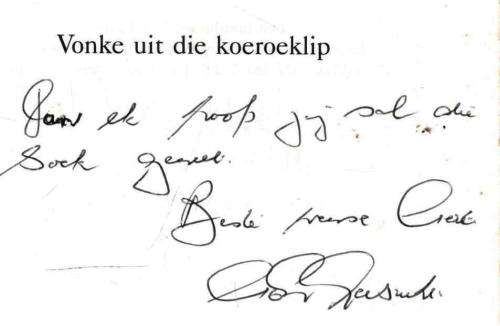 Vonke uit die koeroeklip
ek hoop jy sal die
boek geniet.
Beste wense